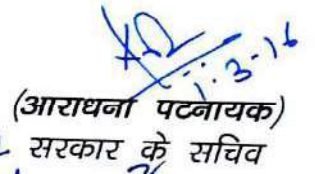 1.3.16
(आराधना पटनायक)
सरकार के सचिव